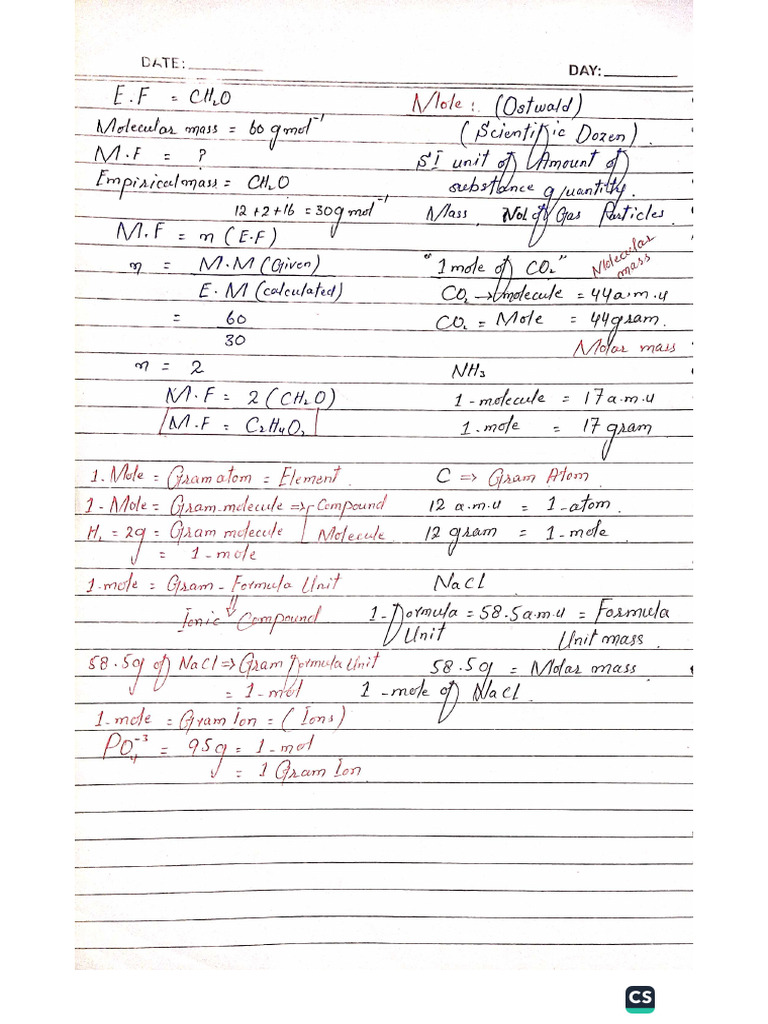 DATE:
DAY:
E.F = CH₂O
Molecular mass = 60 gmol⁻¹
M.F = ?
Empirical mass = CH₂O
12+2+16 = 30g mol⁻¹
M.F = n (E.F)
n = M.M (Given)
E.M (calculated)
= 60
30
n = 2
M.F = 2 (CH₂O)
M.F = C₂H₄O₂
Mole: (Ostwald)
(Scientific Dozen)
SI unit of Amount of
substance quantity.
Mass, Vol of Gas Particles
"1 mole of CO₂" Molecular
mass
CO₂ → 1 molecule = 44 a.m.u
CO₂ = Mole = 44 gram.
Molar mass
NH₃
1-molecule = 17 a.m.u
1-mole = 17 gram
1.Mole = Gram atom = Element
1-Mole = Gram-molecule => Compound
H₂ = 2g = Gram molecule Molecule
= 1-mole
1-mole = Gram-Formula Unit
⇓
Ionic Compound
58.5g of NaCl => Gram formula Unit
= 1-mol
1-mole = Gram Ion = (Ions)
PO₄⁻³ = 95g = 1-mol
= 1 Gram Ion
C => Gram Atom
12 a.m.u = 1-atom
12 gram = 1-mole
NaCl
1-Formula = 58.5 a.m.u = Formula
Unit Unit mass.
58.5g = Molar mass
1-mole of NaCl.
CS